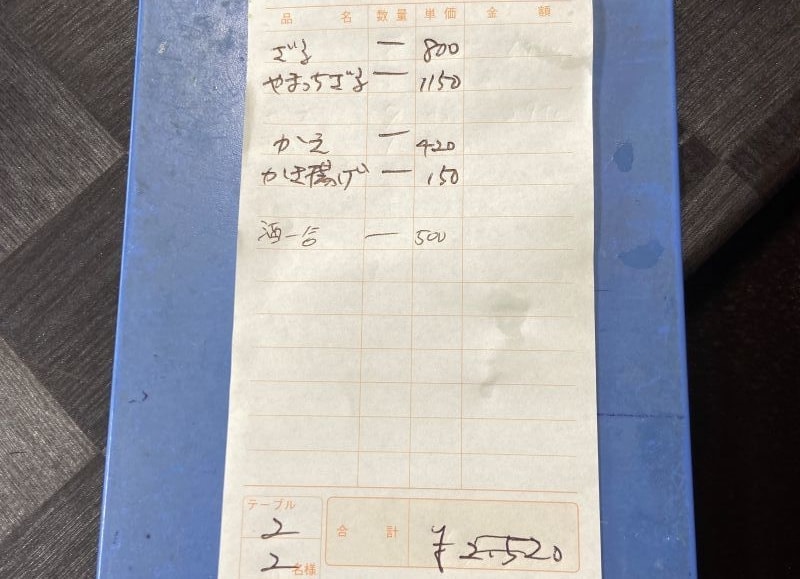 品名 数量 単価 金額
ざる 一 800
やまっちざる 一 1150
かえ 一 420
かき揚げ 一 150
酒一合 一 500
テーブル 2
合計 ¥2,520
2名様